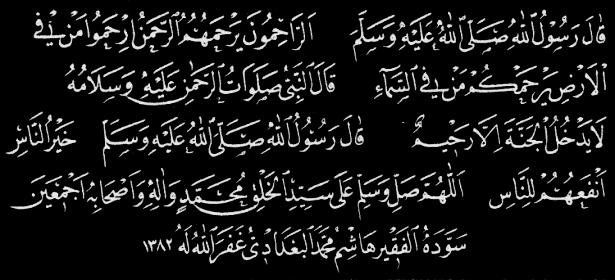 قَالَ رَسُولُ اللهِ صَلَّى اللهُ عَلَيْهِ وَسَلَّمَ الرَّاحِمُونَ يَرْحَمُهُمُ الرَّحْمٰنُ اِرْحَمُوا مَنْ فِي
الْاَرْضِ يَرْحَمْكُمْ مَنْ فِي السَّمَاءِ قَالَ النَّبِيُّ صَلَوَاتُ الرَّحْمٰنِ عَلَيْهِ وَسَلَامُهُ
لَا يَدْخُلُ الْجَنَّةَ اِلَّا رَحِيمٌ قَالَ رَسُولُ اللهِ صَلَّى اللهُ عَلَيْهِ وَسَلَّمَ خَيْرُ النَّاسِ
اَنْفَعُهُمْ لِلنَّاسِ اَللّٰهُمَّ صَلِّ وَسَلِّمْ عَلَى سَيِّدِ الْخَلْقِ مُحَمَّدٍ وَاٰلِهِ وَاَصْحَابِهِ اَجْمَعِينَ
سَوَّدَهُ الْفَقِيرُ هَاشِمُ مُحَمَّد الْبَغْدَادِيُّ غَفَرَ اللهُ لَهُ ١٣٨٢